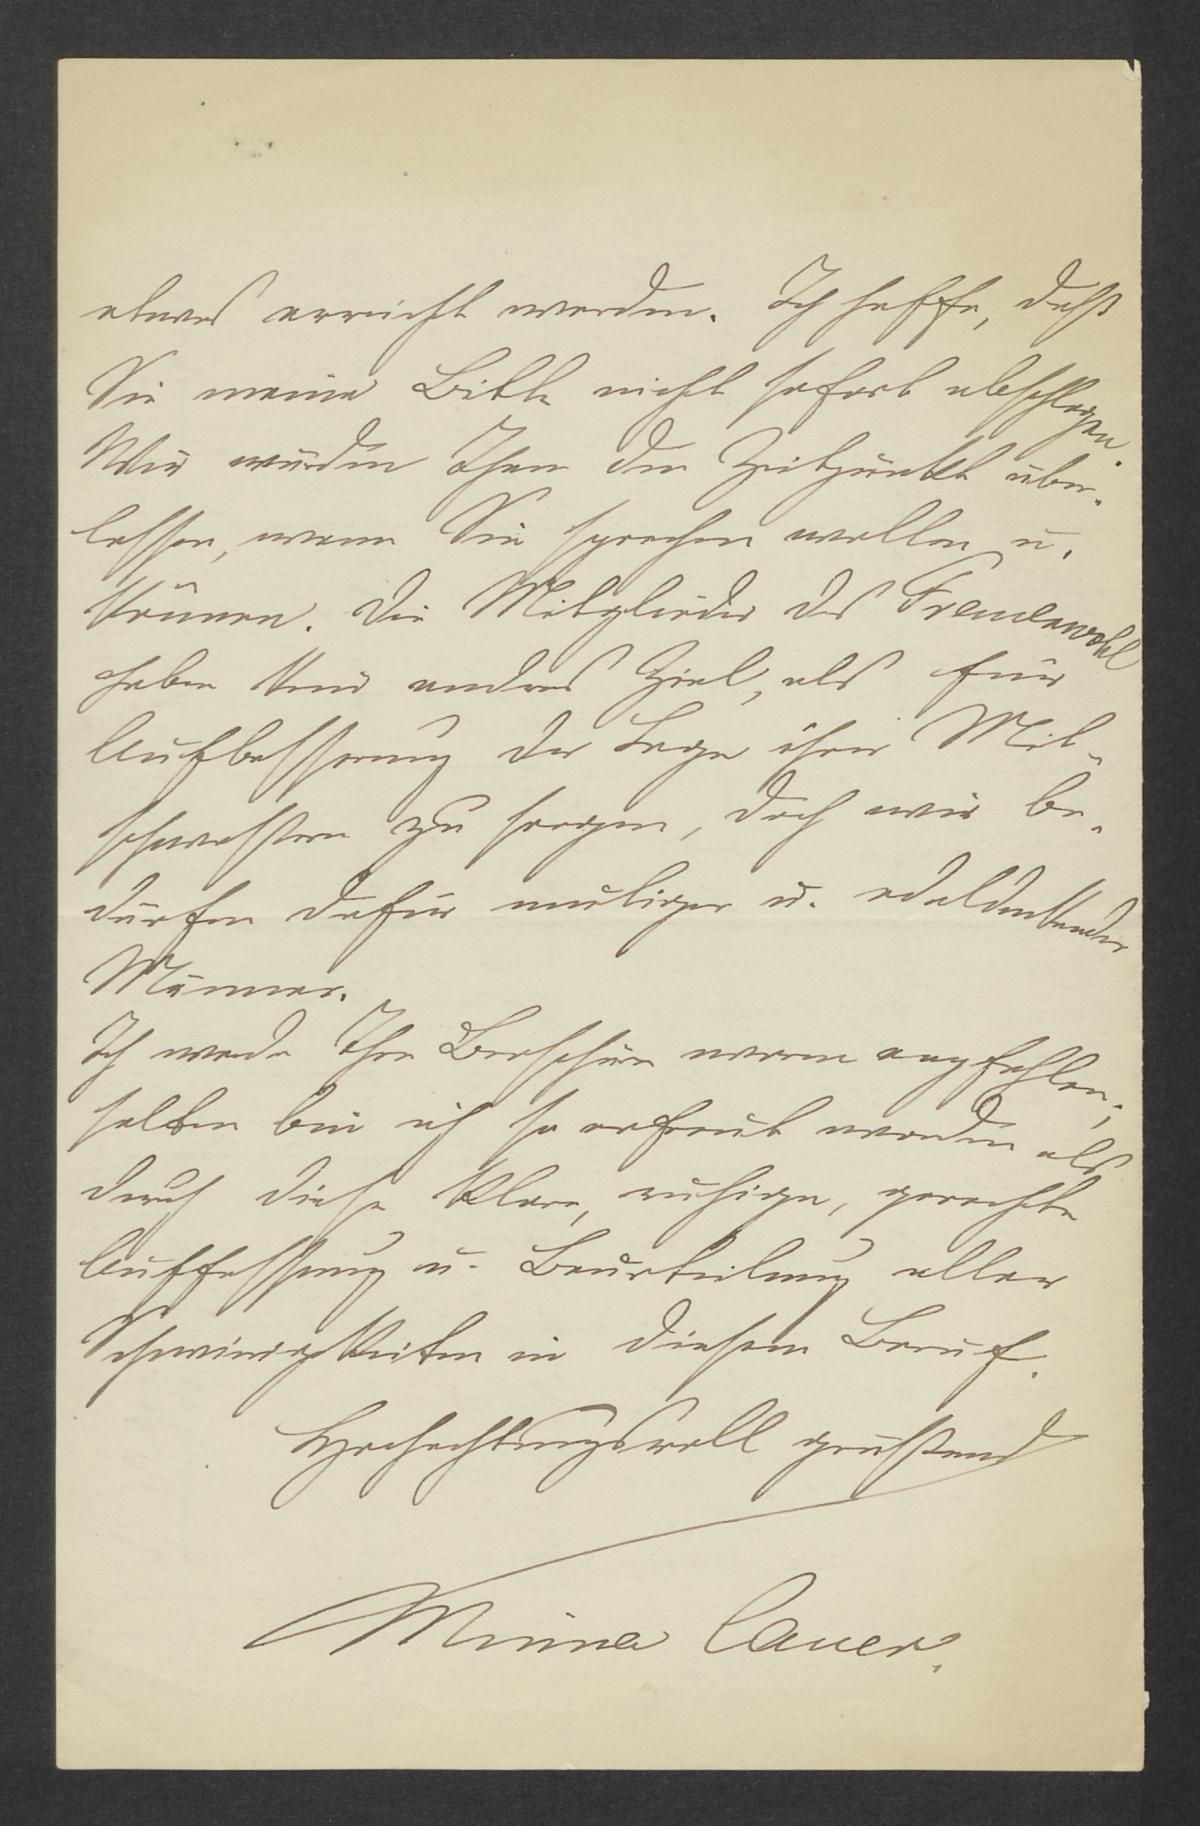 etwas erreicht werden. Ich hoffe, daß
Sie meine Bitte nicht sofort abschlagen.
Wir würden Ihnen den Zeitpunkt über-
lassen, wann Sie sprechen wollen u.
können. Die Mitglieder des Frauenwohl
haben kein andres Ziel, als für
Aufbesserung der Lage ihrer Mit-
schwestern zu sorgen, doch wir be-
dürfen dafür mutiger u. edeldenkender
Männer.
Ich werde Ihre Broschüre warm empfehlen;
selten bin ich so erfreut worden als
durch diese klare, ruhige, gerechte
Auffassung u. Beurteilung aller
Schwierigkeiten in diesem Beruf.
Hochachtungsvoll grüßend
Minna Cauer.